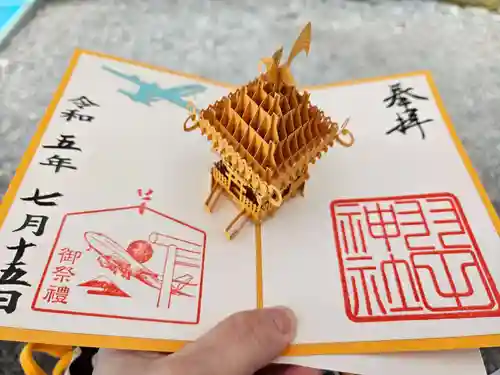 奉拝
羽田
神社
御祭禮
令和五年七月十五日